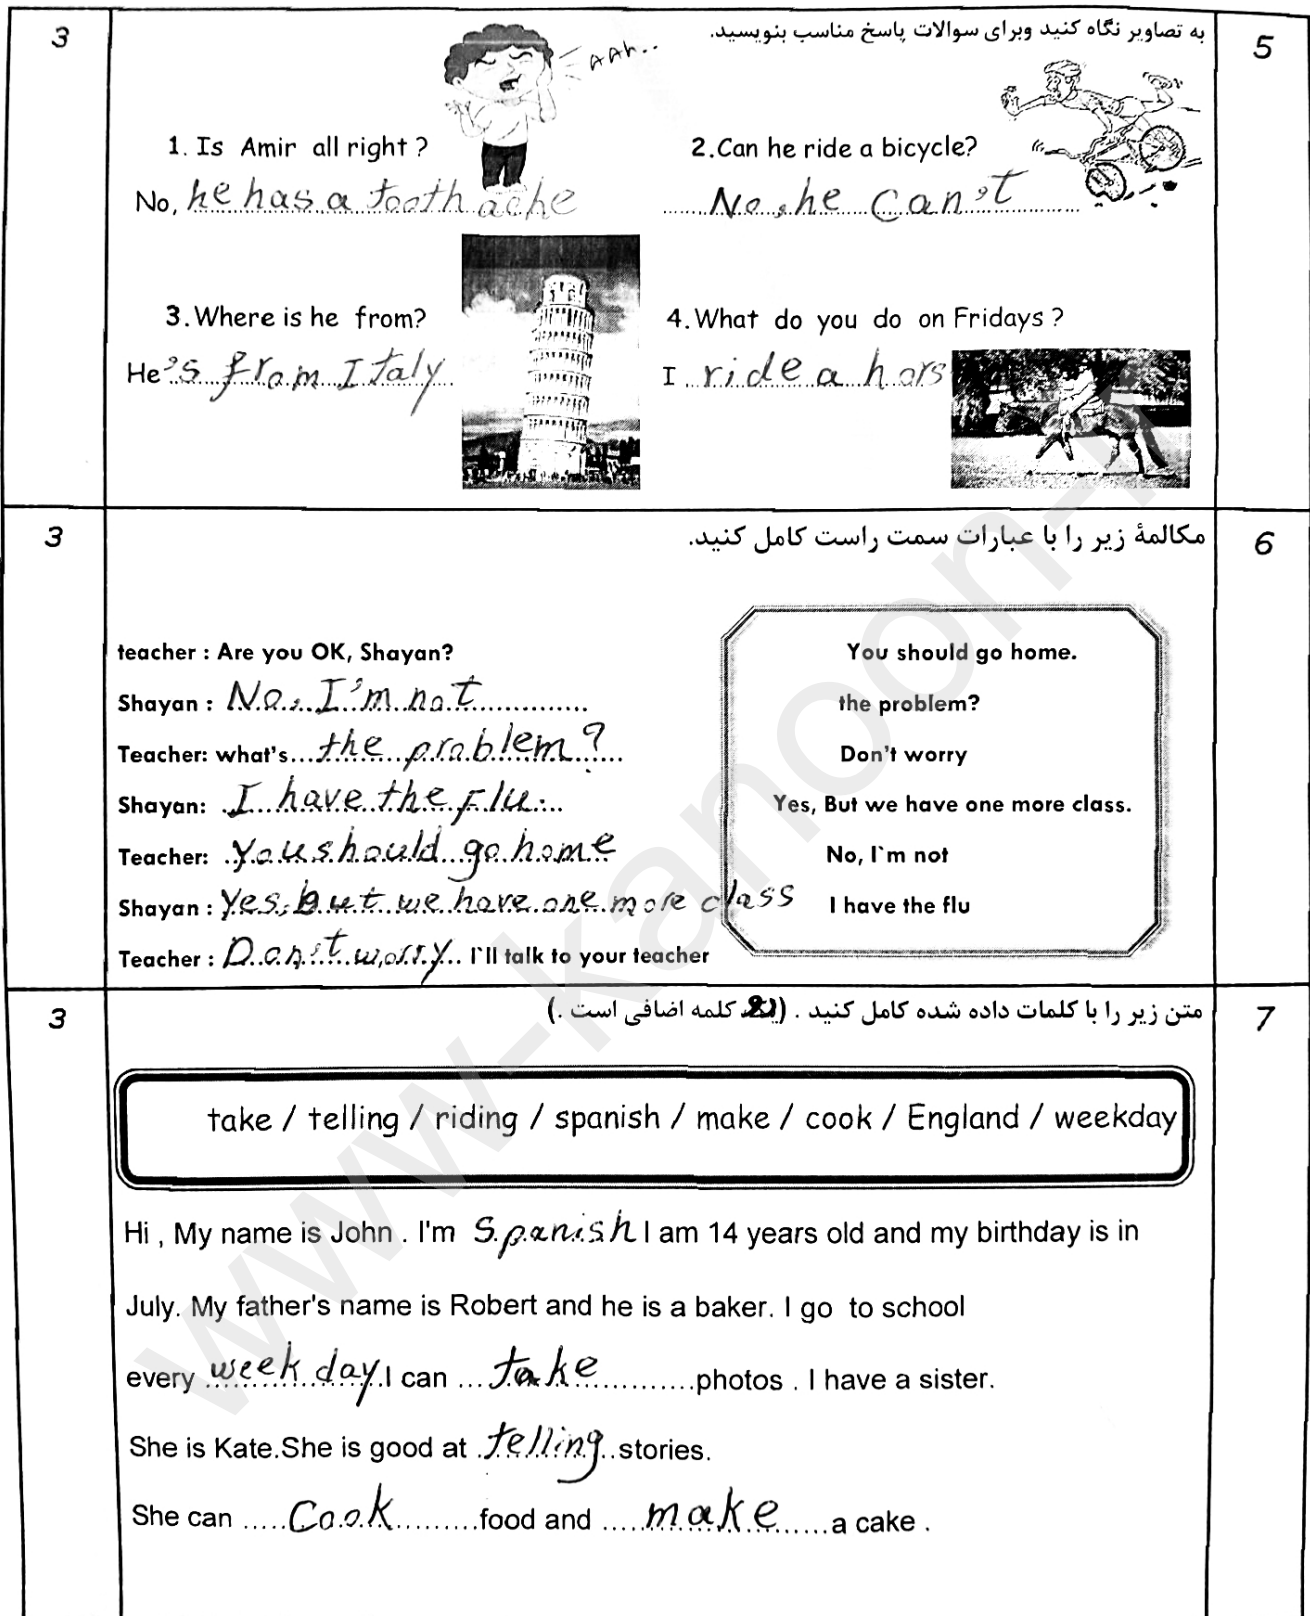 3
به تصاویر نگاه کنید وبرای سوالات پاسخ مناسب بنویسید.
5
AAh..
1. Is Amir all right ?
No, he has a tooth ache
2.Can he ride a bicycle?
No, he can't
3.Where is he from?
He's from Italy
4.What do you do on Fridays ?
I ride a hors
3
مکالمهٔ زیر را با عبارات سمت راست کامل کنید.
6
teacher : Are you OK, Shayan?
Shayan : No, I'm not
Teacher: what's...the problem?
Shayan: I have the flu
Teacher: you should go home
Shayan : Yes, but we have one more class
Teacher : Don't worry.. I`ll talk to your teacher
You should go home.
the problem?
Don't worry
Yes, But we have one more class.
No, I`m not
I have the flu
3
متن زیر را با کلمات داده شده کامل کنید . ( کلمه اضافی است .)
7
take / telling / riding / spanish / make / cook / England / weekday
Hi , My name is John . I'm Spanish I am 14 years old and my birthday is in
July. My father's name is Robert and he is a baker. I go to school
every week day.I can ... take ............photos . I have a sister.
She is Kate.She is good at .telling..stories.
She can ..... Cook .........food and ..... make ......a cake .
www-kanoon-